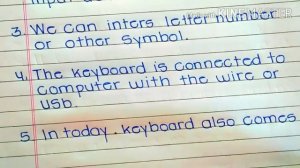 3. We can inters letter number
or other Symbol.
4. The keyboard is connected to
computer with the wire or
usb.
5. In today. keyboard also comes